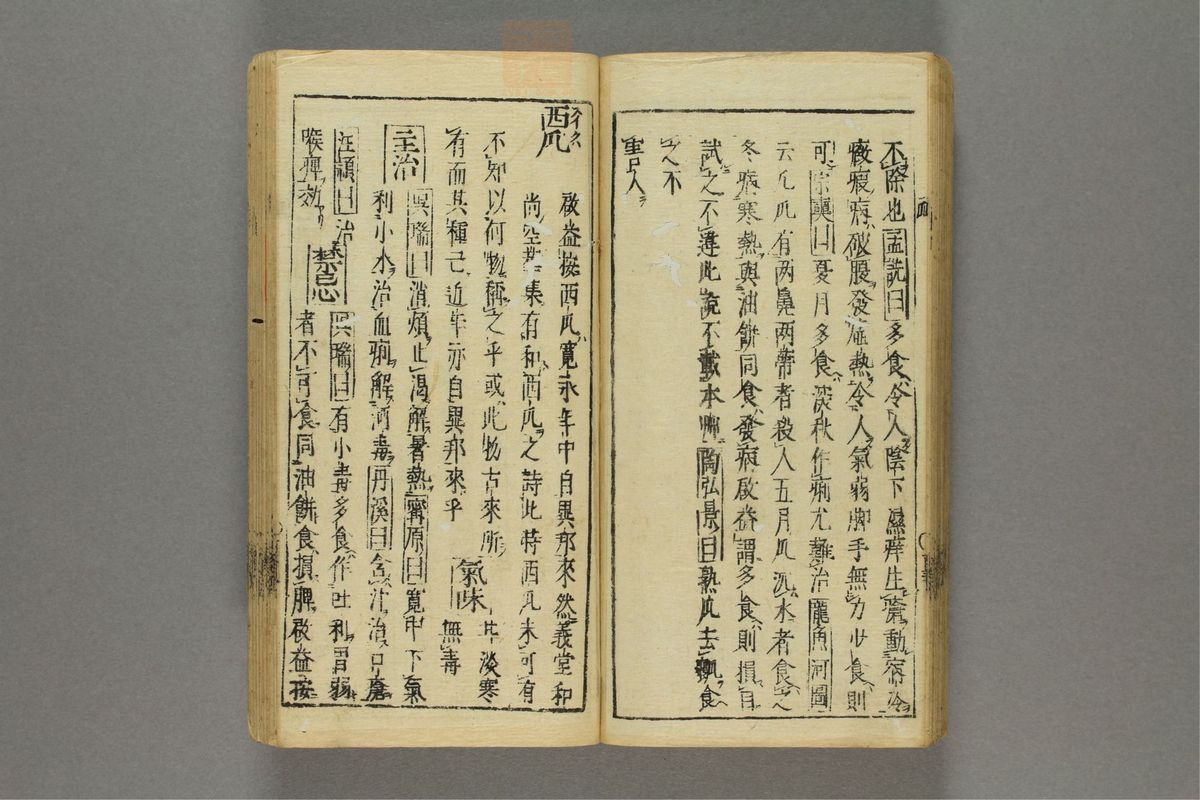 不除也孟詵曰多食令人陰下濕痒生瘡動宿冷
癥瘕病破腹發虛熱令人氣弱脚手無力少食則
可宗奭曰夏月多食深秋作痢尤難治龍魚河圖
云凡瓜有両鼻両蒂者殺人五月瓜沉水者食之
冬病寒熱與油餅同食發病啟益謂多食則損目
試之不違此説不載本艸陶弘景曰熟瓜去瓤食
之不
害人
西瓜
啟益按西瓜寛永年中自異邦來然義堂和
尚空華集有和西瓜之詩此時西瓜未可有
不知以何物稱之乎或此物古來所
有而其種己近年亦自異邦來乎
氣味
甘淡寒
無毒
主治
呉瑞曰消煩止渇解暑熱寗原曰寛中下氣
利小水治血痢解酒毒丹溪曰含汁治口瘡
汪頴曰治
喉痺効
禁忌
呉瑞曰有小毒多食作吐利胃弱
者不可食同油餅食損脾啟益按